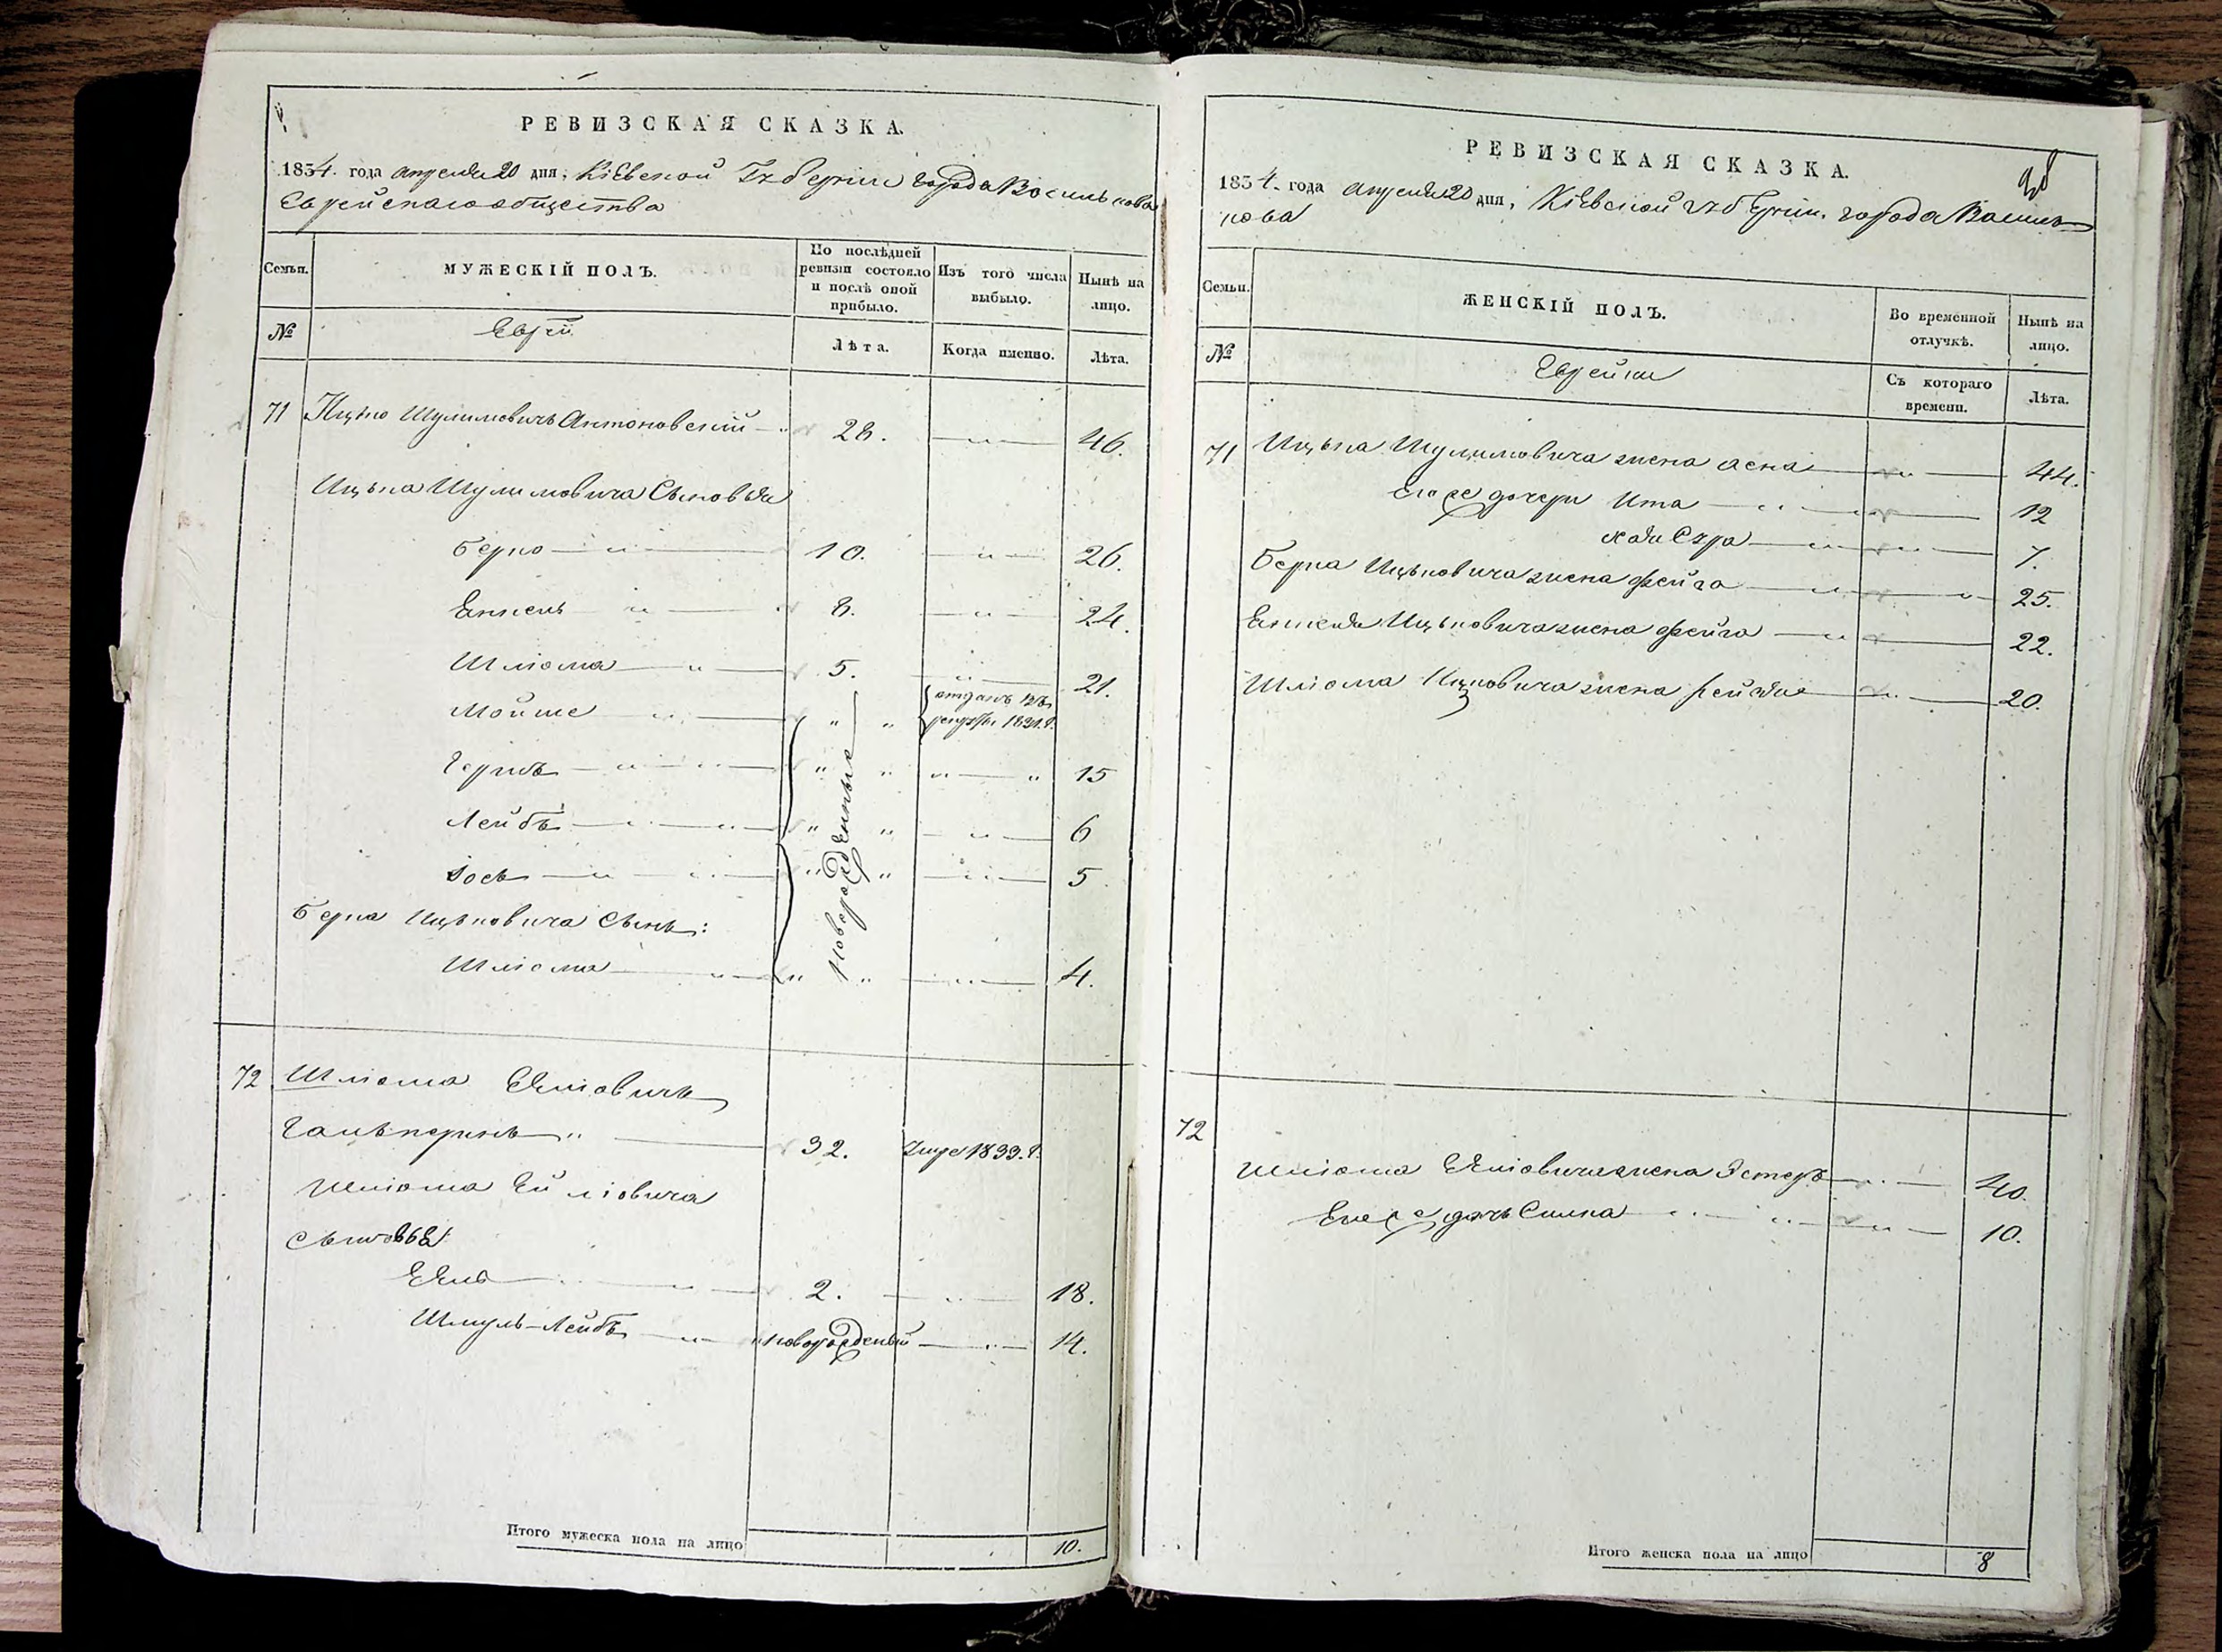 РЕВИЗСКАЯ СКАЗКА.
1834. года апреля 20 дня, Кіевской Губерніи города Василькова
Еврейскаго общества
Семьи.
МУЖЕСКІЙ ПОЛЪ.
По послѣдней ревизіи состояло и послѣ оной прибыло.
Изъ того числа выбыло.
Нынѣ на лицо.
№
Евреи
Лѣта.
Когда именно.
Лѣта.
71 Ицько Шулимовичъ Антоновскій 28. 46.
Ицька Шулимовича Сыновья
Берко 10. 26.
Енкель 8. 24.
Шліома 5. 21.
Мойше отданъ въ рекруты 1831.г.
Гершъ 15
Лейбъ 6
Іось 5
новорожденные
Берка Ицьковича Сынъ:
Шліома 4.
72 Шліома Еліовичъ
Гальперинъ 32. умре 1833.г.
Шліома Еліовича
Сыновья
Еля 2. 18.
Шмуль-Лейбъ новорожденый 14.
Итого мужеска пола на лицо 10.
РЕВИЗСКАЯ СКАЗКА.
1834. года апреля 20 дня, Кіевской губерніи. города Василь
кова
Семьи.
ЖЕНСКІЙ ПОЛЪ.
Во временной отлучкѣ.
Нынѣ на лицо.
№
Еврейки
Съ котораго времени.
Лѣта.
71 Ицька Шулимовича жена Асна 44.
его же дочери Ита 12
Хая Сура 7.
Берка Ицьковича жена Фейга 25.
Енкеля Ицьковича жена Фейга 22.
Шліома Ицковича жена Рейзя 20.
72
Шліома Еліовича жена Эстеръ 40.
Его же дочь Симка 10.
Итого женска пола на лицо 8